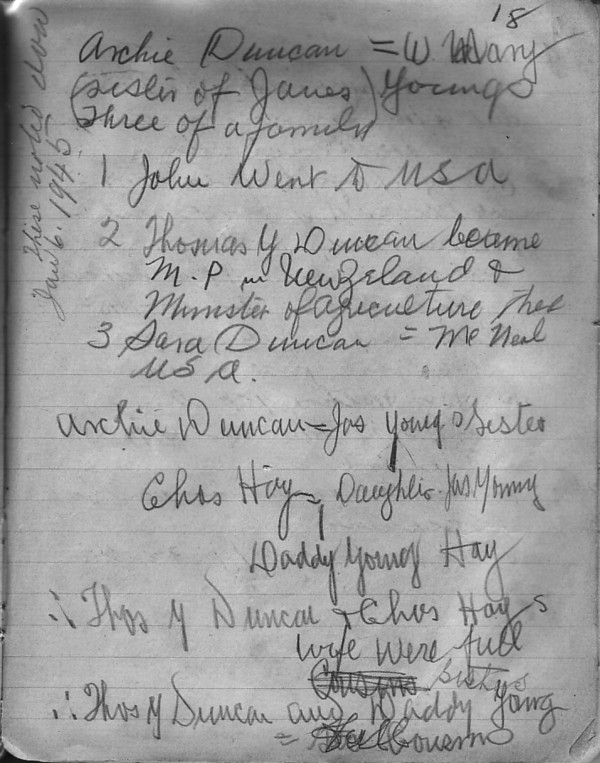 18
Archie Duncan = W Mary
(Sister of James) Youngs
Three of a family
1 John Went to USA
2 Thomas Y Duncan became
M.P in Newzeland &
Minister of agriculture there
3 Sara Duncan = Mc Neal
USA.
Archie Duncan = Jas Young's Sister
Chas Hay = Daughter Jas Young
Daddy Young Hay
∴ Thos Y Duncan & Chas Hay s
wife were full
Cousins
∴ Thos Y Duncan and Daddy Young
= Cousins
These noted down
Jan 6. 1945